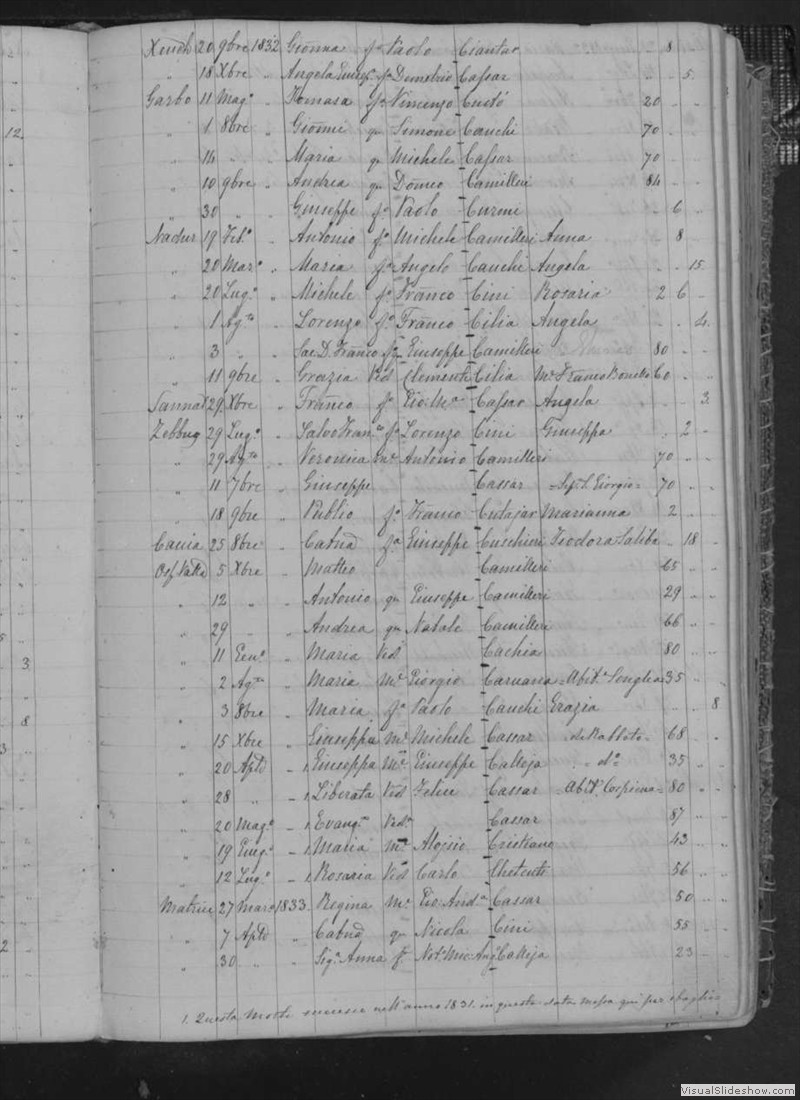 12.
3.
8
3
2
Xeuch. 20 9bre 1832 Gionna fa Paolo Ciantar 8
" 18 Xbre " Angela fa Demetrio Cassar " 5.
Garbo 11 Mago " Tomasa fa Vincenzo Curtó 20
" 1 8bre " Gionni qm Simone Cauchi 70
" 14 " " Maria qm Michele Cassar 70
" 10 9bre " Andrea qm Domco Camilleri 84
" 30 " " Giuseppe fo Paolo Curmi " 6
Nadur 19 Febo " Antonio fo Michele Camilleri Anna " 8
" 20 Maro " Maria fa Angelo Cauchi Angela " " 15.
" 20 Lugo " Michele fo Franco Cini Rosaria 2 6
" 1 Agto " Lorenzo fo Franco Cilia Angela " " 4.
" 3 " " Sac. D. Franco fo Giuseppe Camilleri 80
" 11 9bre " Grazia Vid Clemente Cilia Me Franco Bonello 60
Sannat 29 Xbre " Franco fo Pio Ma Cassar Angela " " 3.
Zebbug 29 Lugo " Salvo Franco fo Lorenzo Cini Giuseppa " 2
" 29 Agto " Veronica me Antonio Camilleri 70
" 11 7bre " Giuseppe Cassar = Sepo S. Giorgio = 70
" 18 9bre " Publio fo Franco Cutajar Marianna 2
Cauia 25 8bre " Catna fa Giuseppe Cuschieri Teodora Saliba " 18
5 Xbre " Matteo Camilleri 65
" 12 " " Antonio qm Giuseppe Camilleri 29
" 29 " " Andrea qm Natale Camilleri 66
" 11 " Maria Vid Cachia 80
" 2 Agto " Maria Me Giorgio Caruana = Abite Senglea 35
" 3 8bre " Maria fa Paolo Cauchi Grazia " " 8
" 15 Xbre " Giuseppa me Michele Cassar = de Rabbato = 68
" 20 Aple " 1. Giuseppa Me Giuseppe Calleja = do = 35
" 28 " " 1. Liberata Vid Felice Cassar = Abite Cospicua = 80
" 20 Mago " 1. Evanga Vida Cassar 87
" 19 Giugo " 1. Maria me Aloisio Cristiano 43
" 12 Lugo " 1. Rosaria Vid Carlo Chetcuti 56
Matrice 27 Maro 1833. Regina Me Pio Anda Cassar 50
" 7 Aple " Catna qm Nicola Cini 55
" 30 " " Siga Anna fa Noto Mic Ango Calleja 23
1. Questa Morte successe nell'anno 1831. in questa data messa qui per sbaglio
VisualSlideshow.com